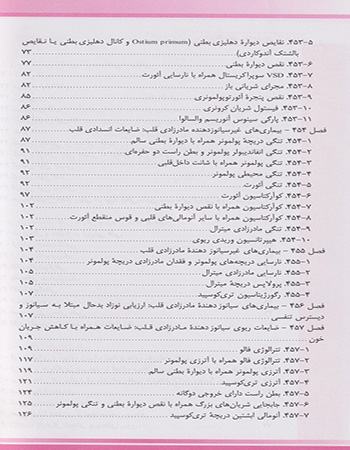 ۴۵۳-۵. نقایص دیوارهٔ دهلیزی بطنی (Ostium primum و کانال دهلیزی بطنی یا نقایص
بالشتک آندوکاردی) ۷۳
۴۵۳-۶. نقص دیوارهٔ بطنی ۷۷
۴۵۳-۷. VSD سوپراکریستال همراه با نارسایی آئورت ۸۲
۴۵۳-۸. مجرای شریانی باز ۸۲
۴۵۳-۹. نقص پنجرهٔ آئورتوپولمونری ۸۵
۴۵۳-۱۰. فیستول شریان کرونری ۸۶
۴۵۳-۱۱. پارگی سینوس آنوریسم والسالوا ۸۶
فصل ۴۵۴ - بیماری‌های غیرسیانوزدهنده مادرزادی قلب: ضایعات انسدادی قلب ۸۷
۴۵۴-۱. تنگی دریچهٔ پولمونر همراه با دیوارهٔ بطنی سالم ۸۷
۴۵۴-۲. تنگی انفاندیبولر پولمونر و بطن راست دو حفره‌ای ۹۱
۴۵۴-۳. تنگی پولمونر همراه با شانت داخل‌قلبی ۹۱
۴۵۴-۴. تنگی محیطی پولمونر ۹۲
۴۵۴-۵. تنگی آئورت ۹۲
۴۵۴-۶. کوآرکتاسیون آئورت ۹۷
۴۵۴-۷. کوآرکتاسیون همراه با نقص دیوارهٔ بطنی ۱۰۲
۴۵۴-۸. کوآرکتاسیون همراه با سایر آنومالی‌های قلبی و قوس منقطع آئورت ۱۰۲
۴۵۴-۹. تنگی مادرزادی میترال ۱۰۳
۴۵۴-۱۰. هیپرتانسیون وریدی ریوی ۱۰۳
فصل ۴۵۵ - بیماری‌های غیرسیانوز دهندهٔ مادرزادی قلب ۱۰۴
۴۵۵-۱. نارسایی دریچه‌های پولمونر و فقدان مادرزادی دریچهٔ پولمونر ۱۰۴
۴۵۵-۲. نارسایی مادرزادی میترال ۱۰۵
۴۵۵-۳. پرولاپس دریچهٔ میترال ۱۰۵
۴۵۵-۴. رگورژیتاسیون تری‌کوسپید ۱۰۷
فصل ۴۵۶ - بیماری‌های سیانوز دهندهٔ مادرزادی قلب: ارزیابی نوزاد بدحال مبتلا به سیانوز و
دیسترس تنفسی ۱۰۷
فصل ۴۵۷ - ضایعات ریوی سیانوز دهندهٔ مادرزادی قلب: ضایعات همراه با کاهش جریان
خون ۱۰۹
۴۵۷-۱. تترالوژی فالو ۱۰۹
۴۵۷-۲. تترالوژی فالو همراه با آترزی پولمونر ۱۱۷
۴۵۷-۳. آترزی پولمونر همراه با دیوارهٔ بطنی سالم ۱۱۹
۴۵۷-۴. آترزی تری‌کوسپید ۱۲۱
۴۵۷-۵. بطن راست دارای خروجی دوگانه ۱۲۴
۴۵۷-۶. جابجایی شریان‌های بزرگ همراه با نقص دیوارهٔ بطنی و تنگی پولمونر ۱۲۵
۴۵۷-۷. آنومالی ابشتین دریچهٔ تری‌کوسپید ۱۲۶